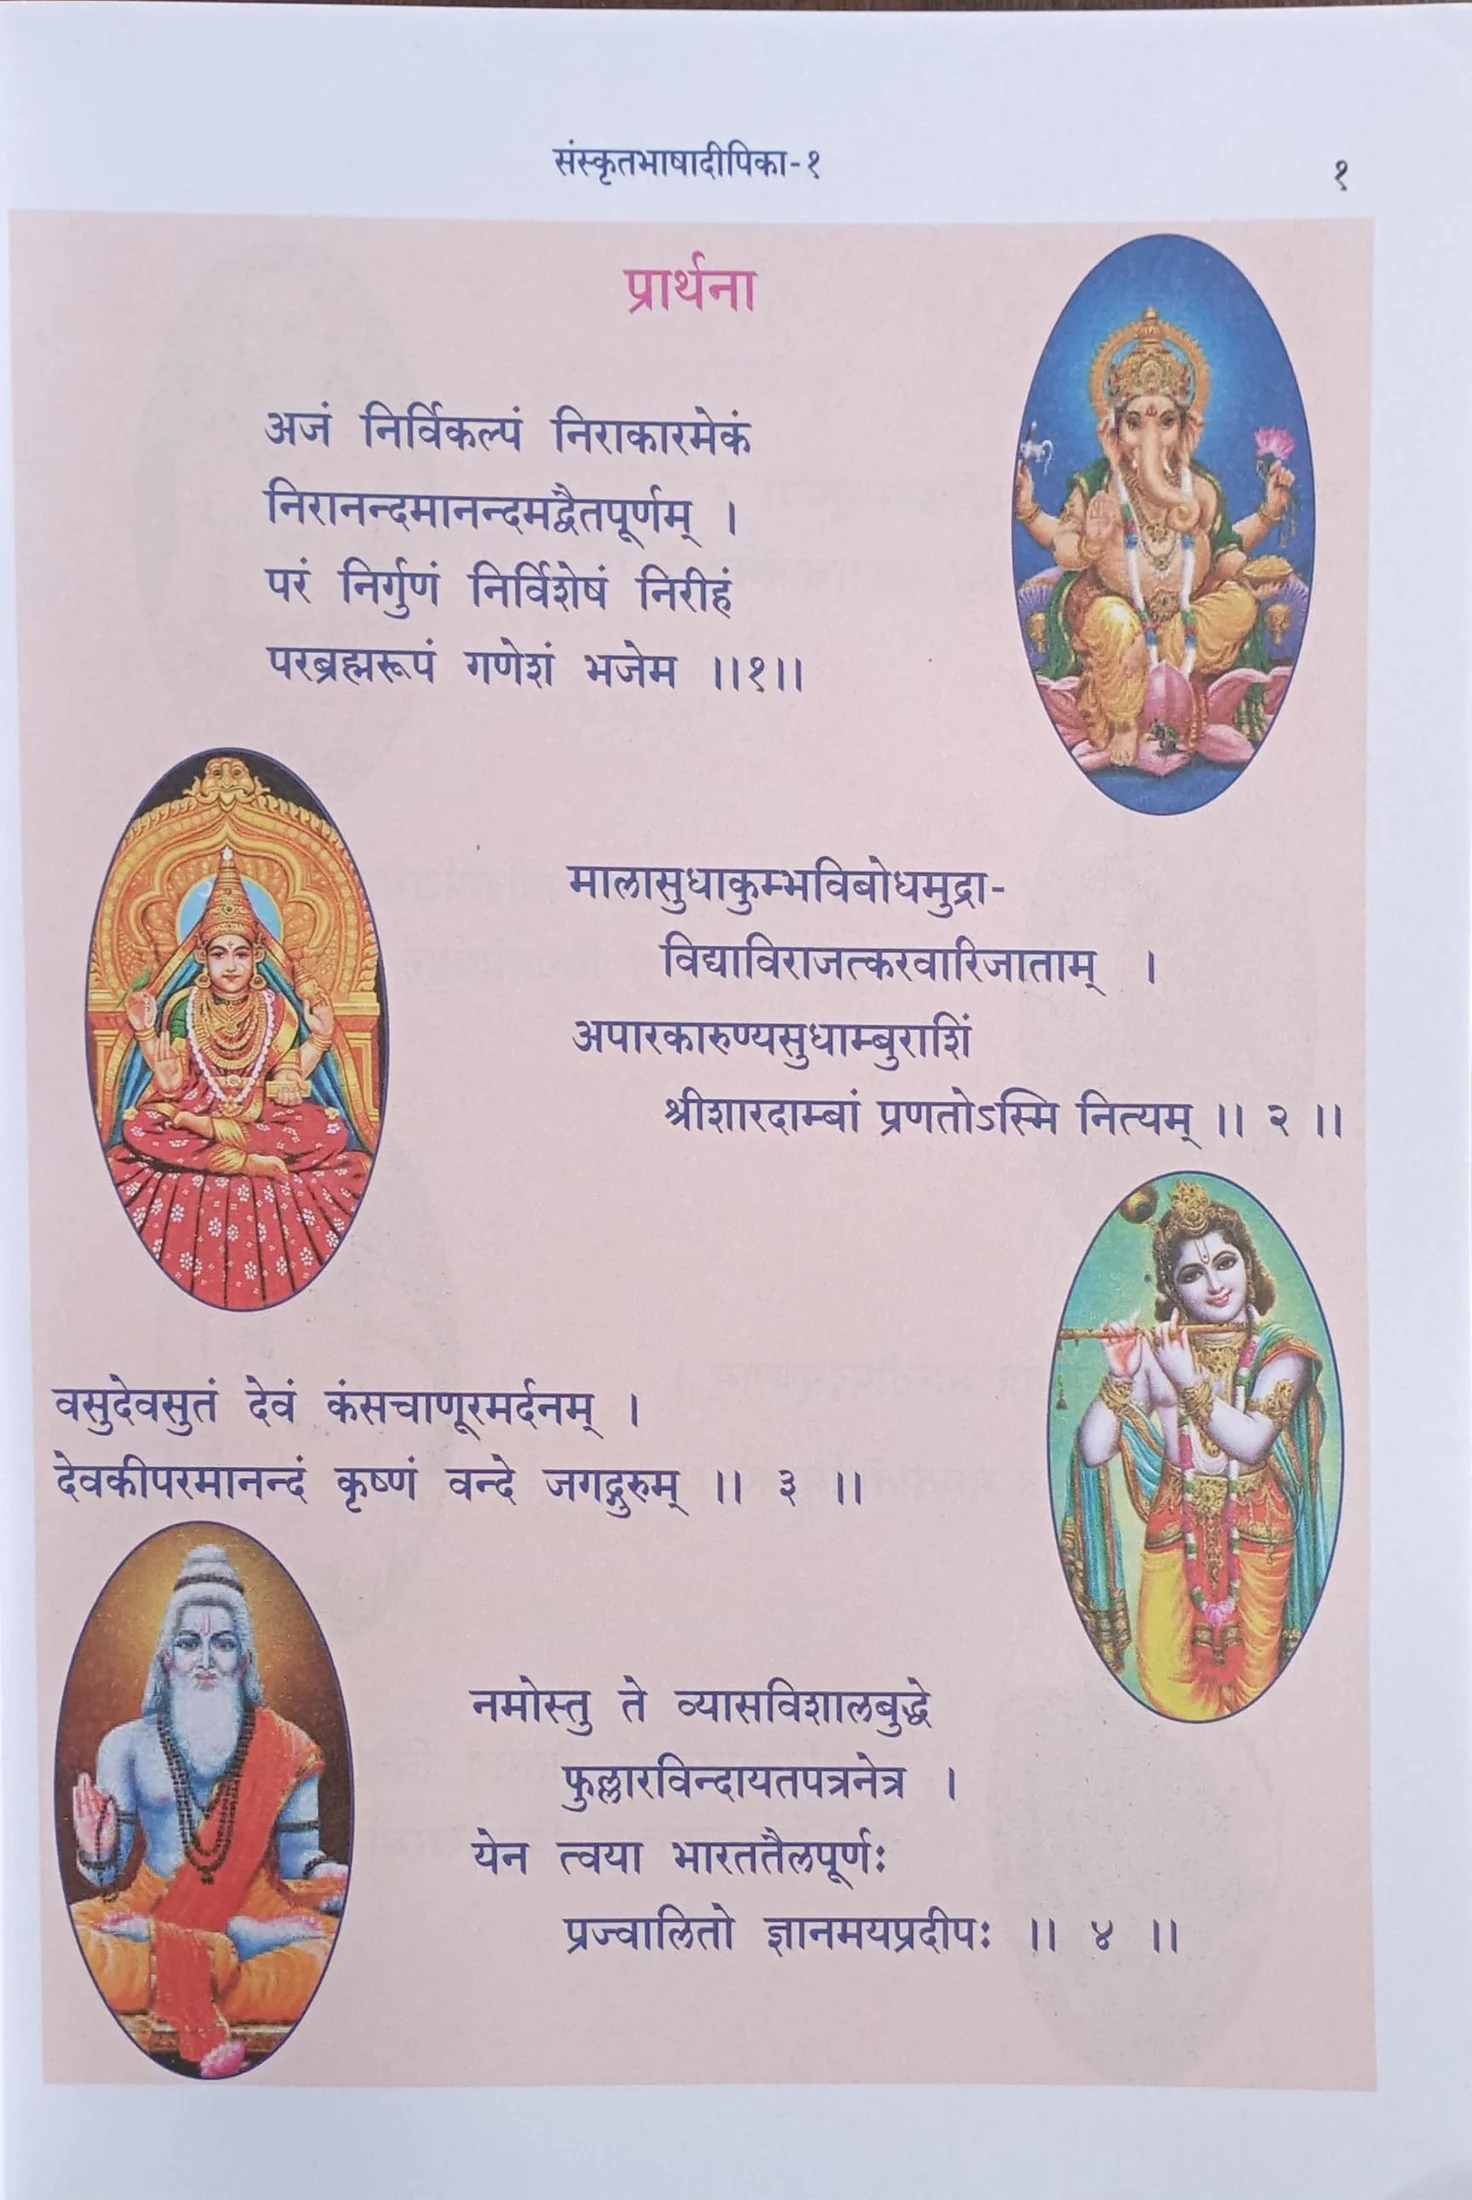 संस्कृतभाषादीपिका-१
१
प्रार्थना
अजं निर्विकल्पं निराकारमेकं
निरानन्दमानन्दमद्वैतपूर्णम् ।
परं निर्गुणं निर्विशेषं निरीहं
परब्रह्मरूपं गणेशं भजेम ।।१।।
मालासुधाकुम्भविबोधमुद्रा-
विद्याविराजत्करवारिजाताम् ।
अपारकारुण्यसुधाम्बुराशिं
श्रीशारदाम्बां प्रणतोऽस्मि नित्यम् ।। २ ।।
वसुदेवसुतं देवं कंसचाणूरमर्दनम् ।
देवकीपरमानन्दं कृष्णं वन्दे जगद्गुरुम् ।। ३ ।।
नमोस्तु ते व्यासविशालबुद्धे
फुल्लारविन्दायतपत्रनेत्र ।
येन त्वया भारततैलपूर्णः
प्रज्वालितो ज्ञानमयप्रदीपः ।। ४ ।।